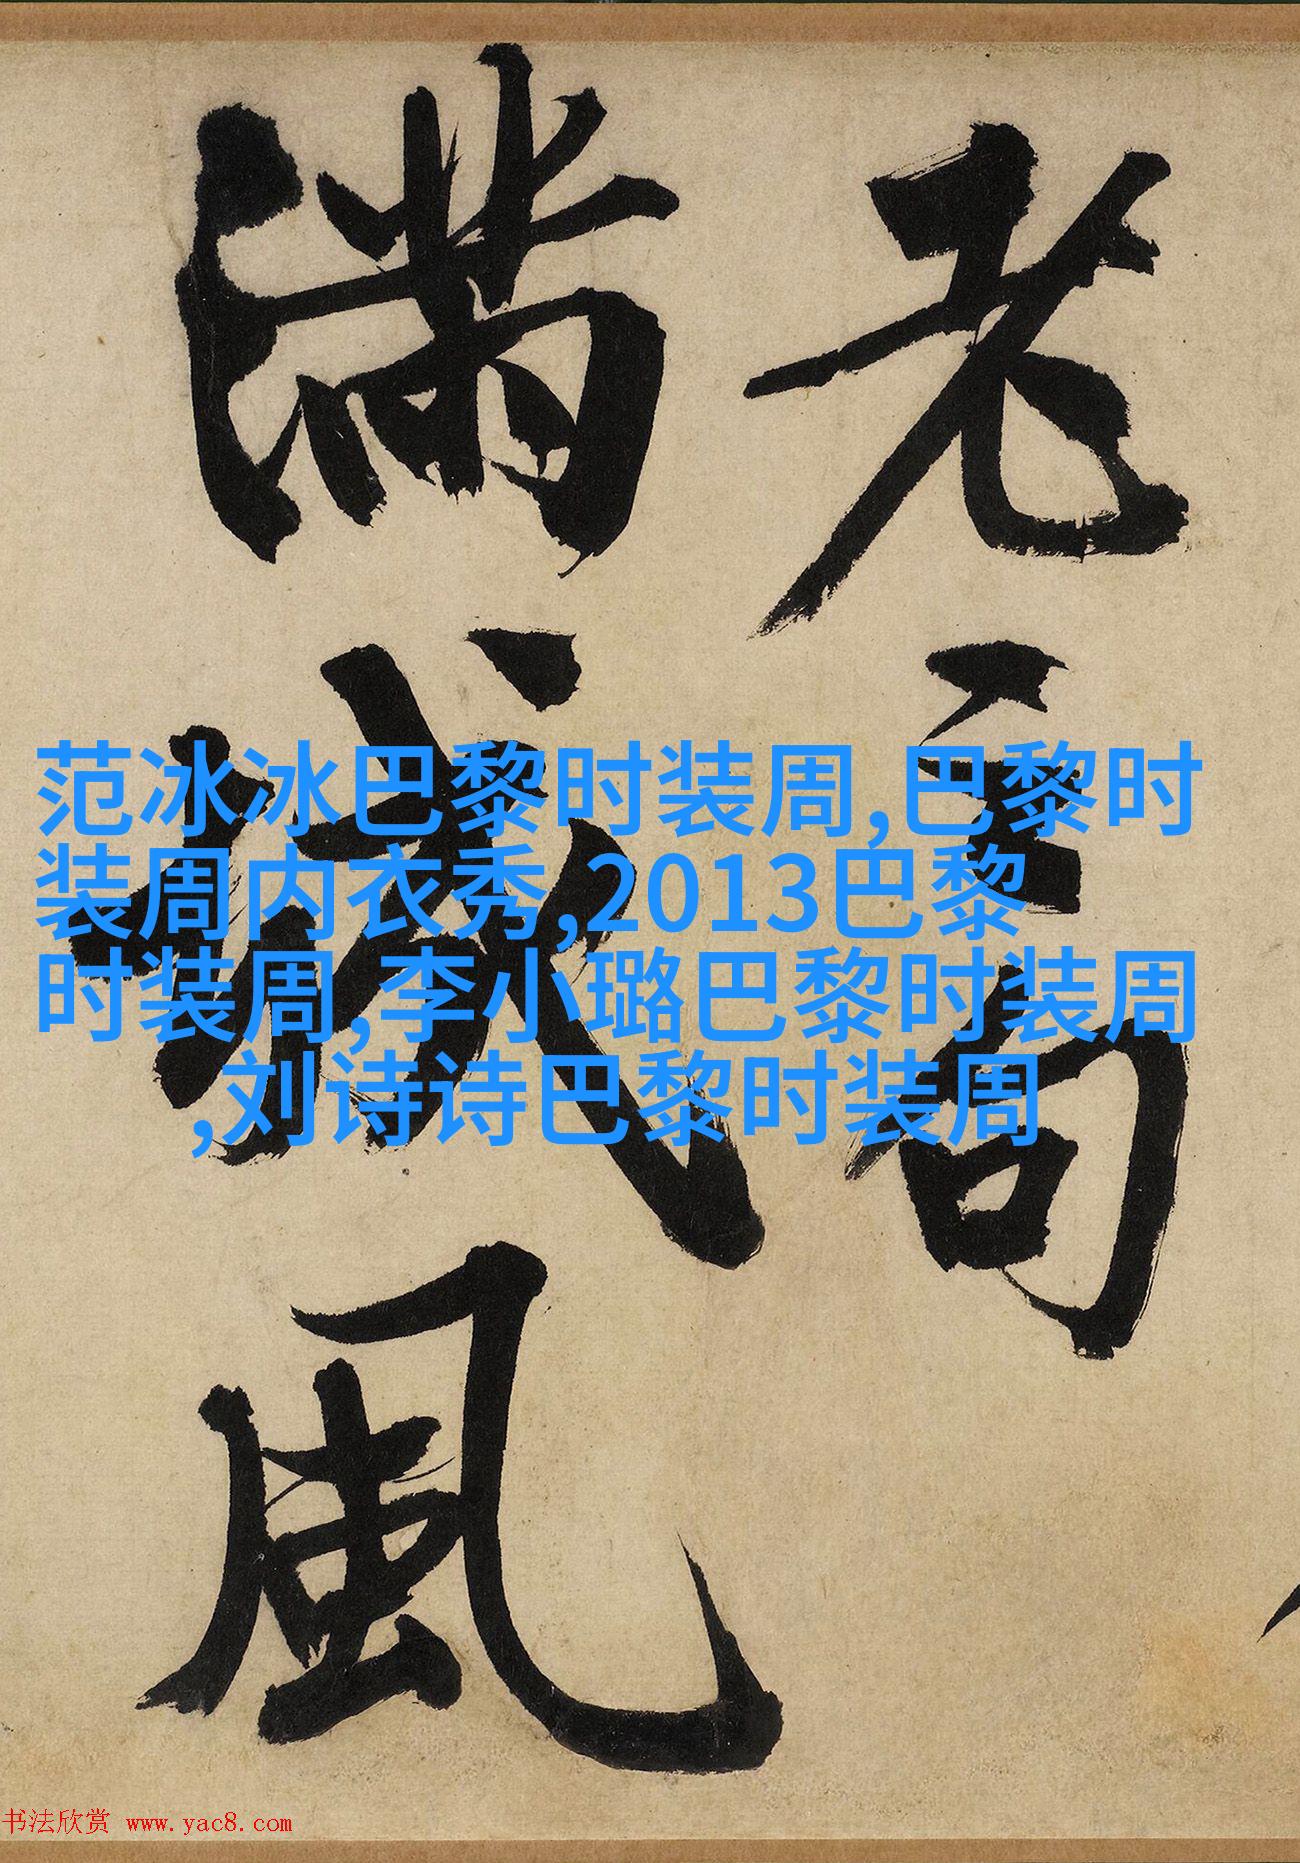 老高
滿城風
范冰冰巴黎时装周,巴黎时
装周内衣秀,2013巴黎
时装周,李小璐巴黎时装周
,刘诗诗巴黎时装周
书法欣赏 www.yac8.com